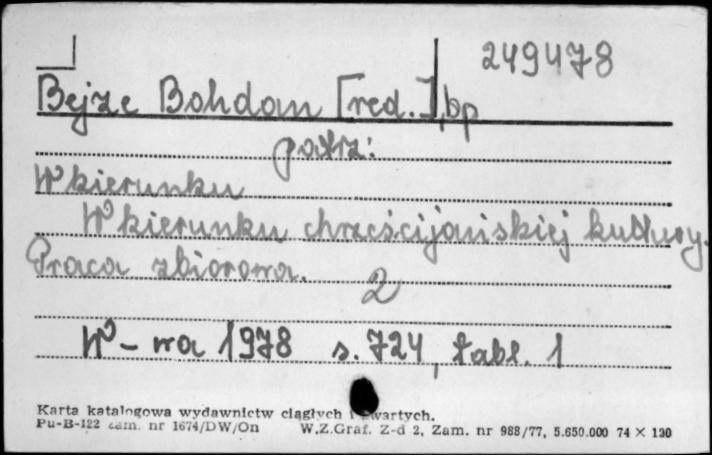 249478
Bejze Bohdan [red.], bp
patrz:
W kierunku
W kierunku chrześcijańskiej kultury.
Praca zbiorowa.
2
W-wa 1978 s. 724, tabl. 1
Karta katalogowa wydawnictw ciągłych i zwartych.
Pu-B-122 zam. nr 1674/DW/On W.Z.Graf. Z-d 2, Zam. nr 988/77, 5.650.000 74 × 120